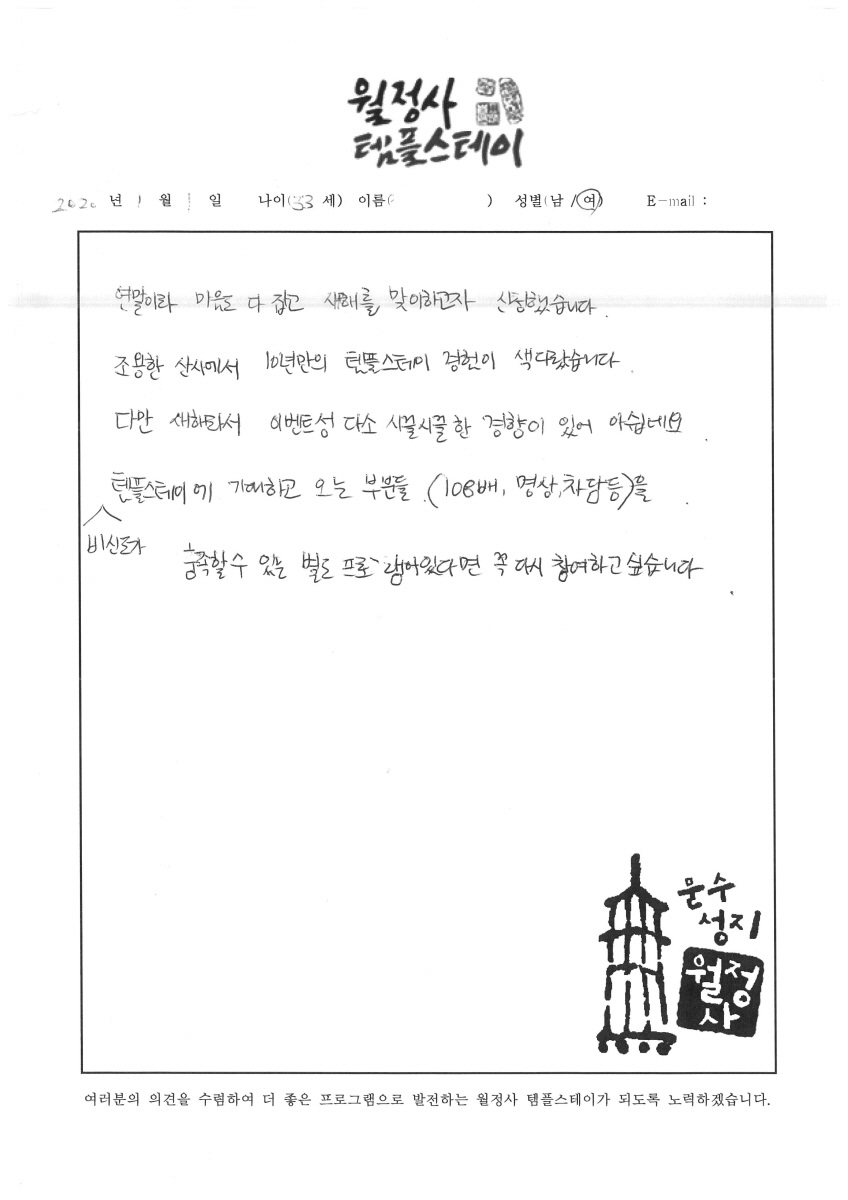 월정사
템플스테이
2020 년 1 월 1 일 나이(33 세) 이름( ) 성별(남/여) E-mail :
연말이라 마음도 다 잡고 새해를 맞이하고자 신청했습니다.
조용한 산사에서 10년만의 템플스테이 경험이 색다랐습니다.
다만 새해라서 이벤트성 다소 시끌시끌한 경향이 있어 아쉽네요.
템플스테이에 기대하고 오는 부분들 (108배, 명상, 차담등)을
비신도가
충족할수 있는 별도 프로그램이있다면 꼭 다시 참여하고 싶습니다.
문수
성지
월정
사
여러분의 의견을 수렴하여 더 좋은 프로그램으로 발전하는 월정사 템플스테이가 되도록 노력하겠습니다.